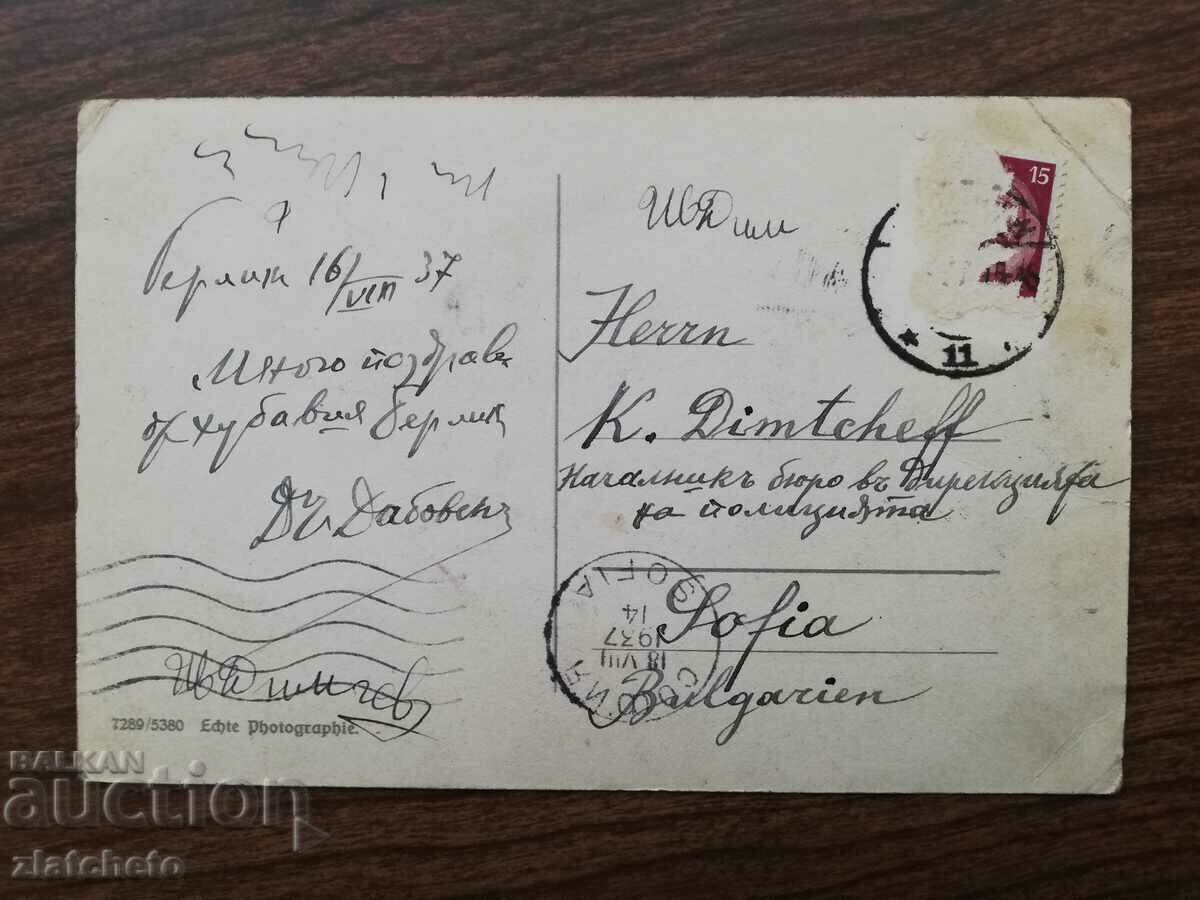 Берлин 16/VIII 37
Много поздрави
от хубавия Берлин
7289/5380 Echte Photographie.
15
11
Herrn
K. Dimtcheff
Началникъ бюро въ Дирекцията
на полицията
Sofia
Bulgarien
SOFIA
14
1937
18 VIII
СОФИЯ
BALKAN
auction
zlatcheto